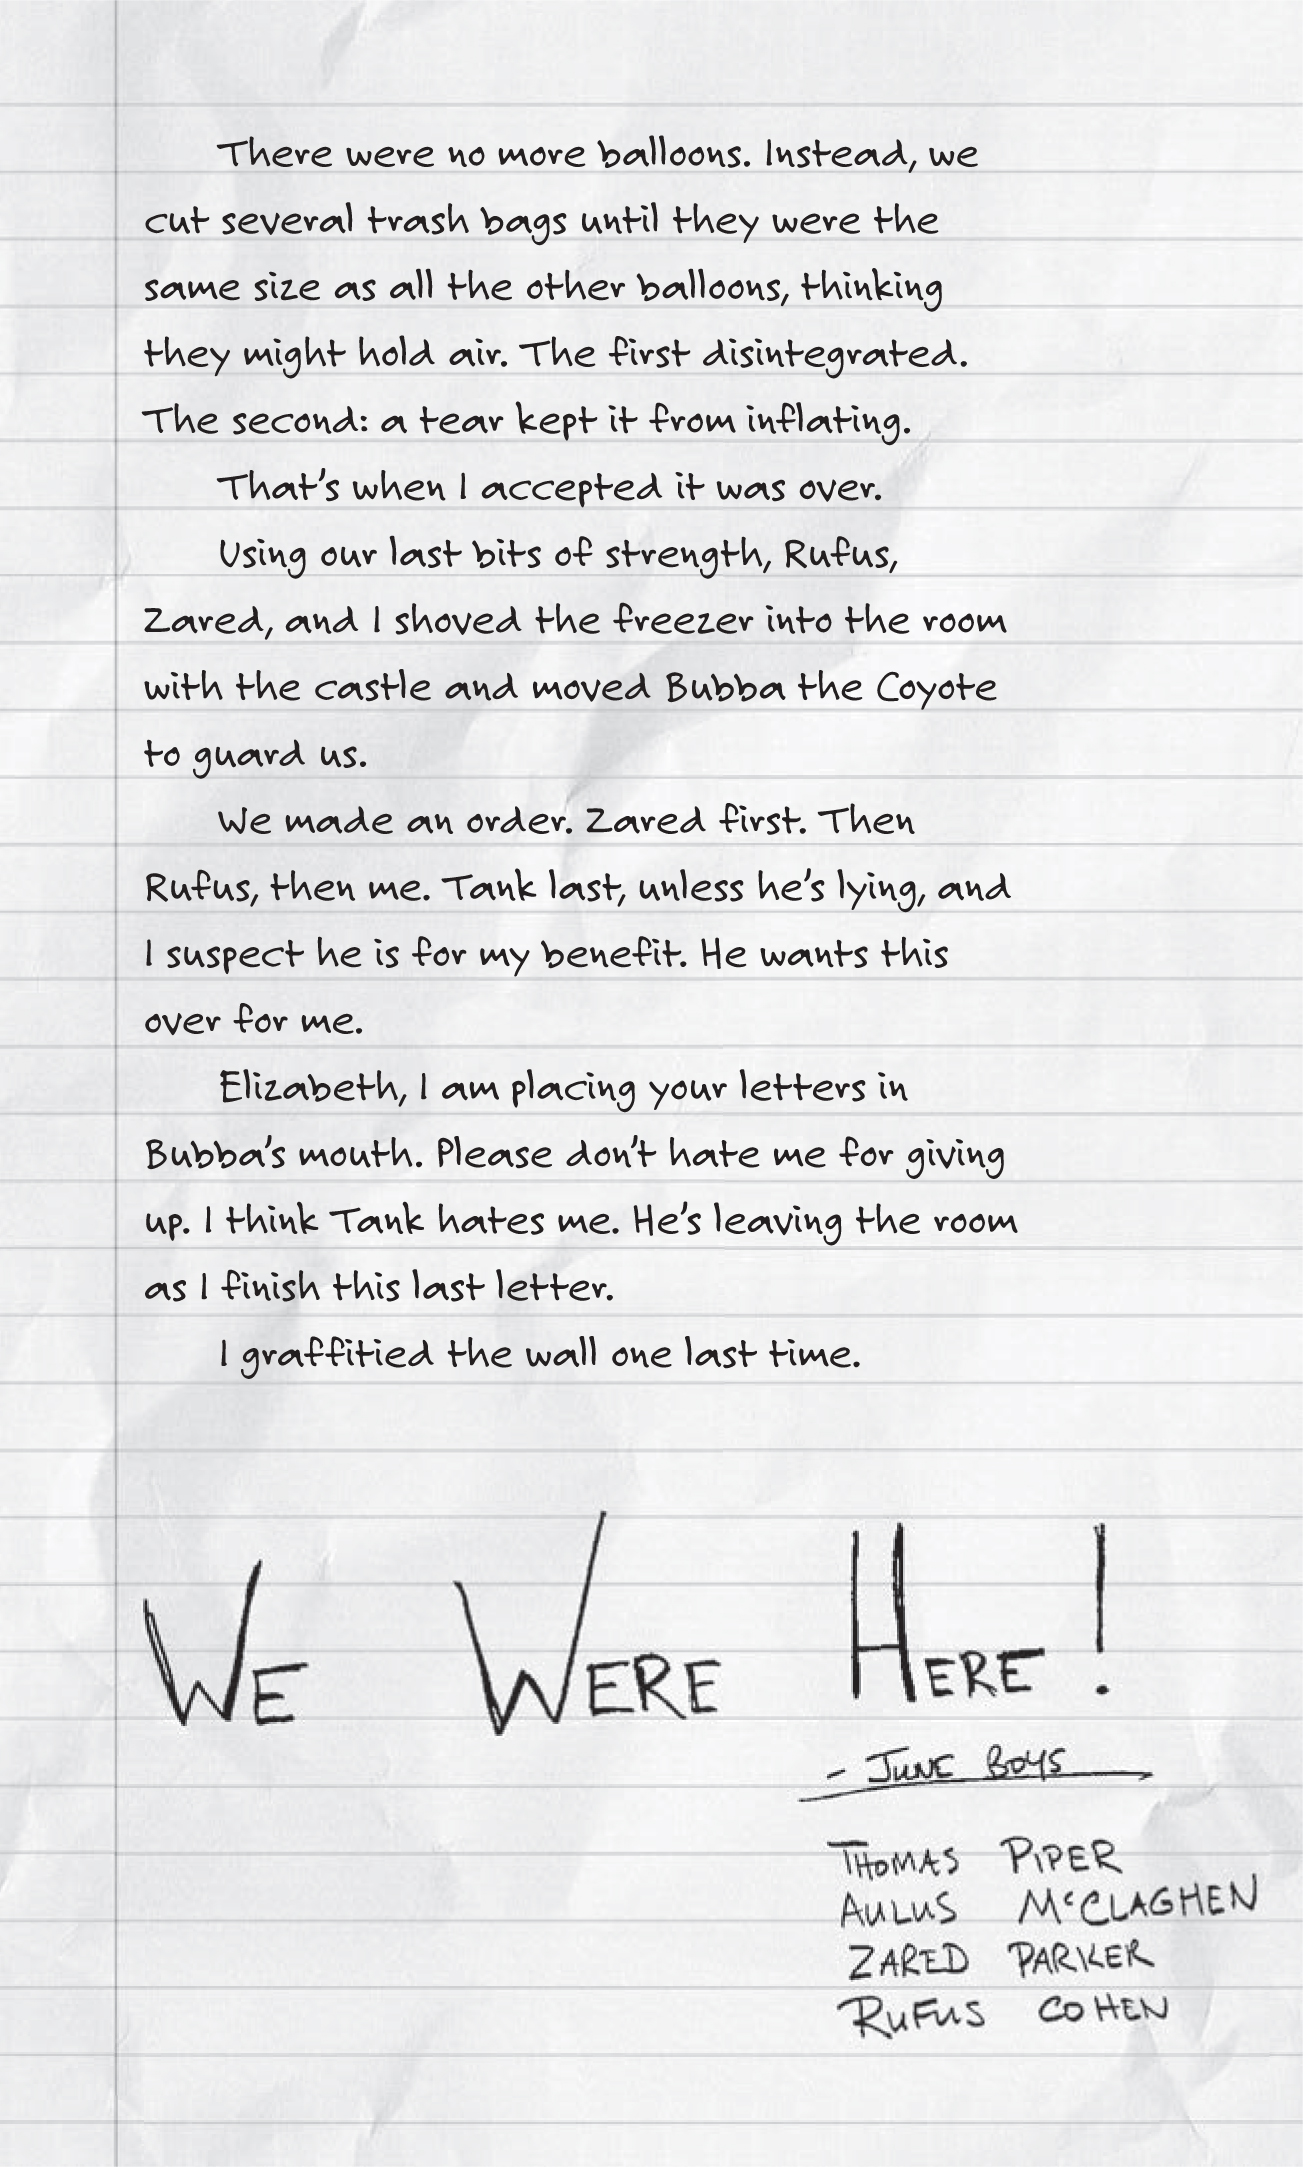 There were no more balloons. Instead, we
cut several trash bags until they were the
same size as all the other balloons, thinking
they might hold air. The first disintegrated.
The second: a tear kept it from inflating.
That's when I accepted it was over.
Using our last bits of strength, Rufus,
Zared, and I shoved the freezer into the room
with the castle and moved Bubba the Coyote
to guard us.
We made an order. Zared first. Then
Rufus, then me. Tank last, unless he's lying, and
I suspect he is for my benefit. He wants this
over for me.
Elizabeth, I am placing your letters in
Bubba's mouth. Please don't hate me for giving
up. I think Tank hates me. He's leaving the room
as I finish this last letter.
I graffitied the wall one last time.
WE WERE HERE!
- JUNE BOYS
THOMAS PIPER
AULUS McCLAGHEN
ZARED PARKER
RUFUS COHEN